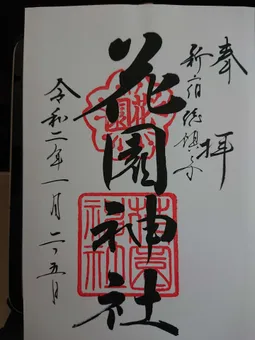 奉拝
新宿総鎮守
花園神社
花園
神社
令和二年一月二十五日